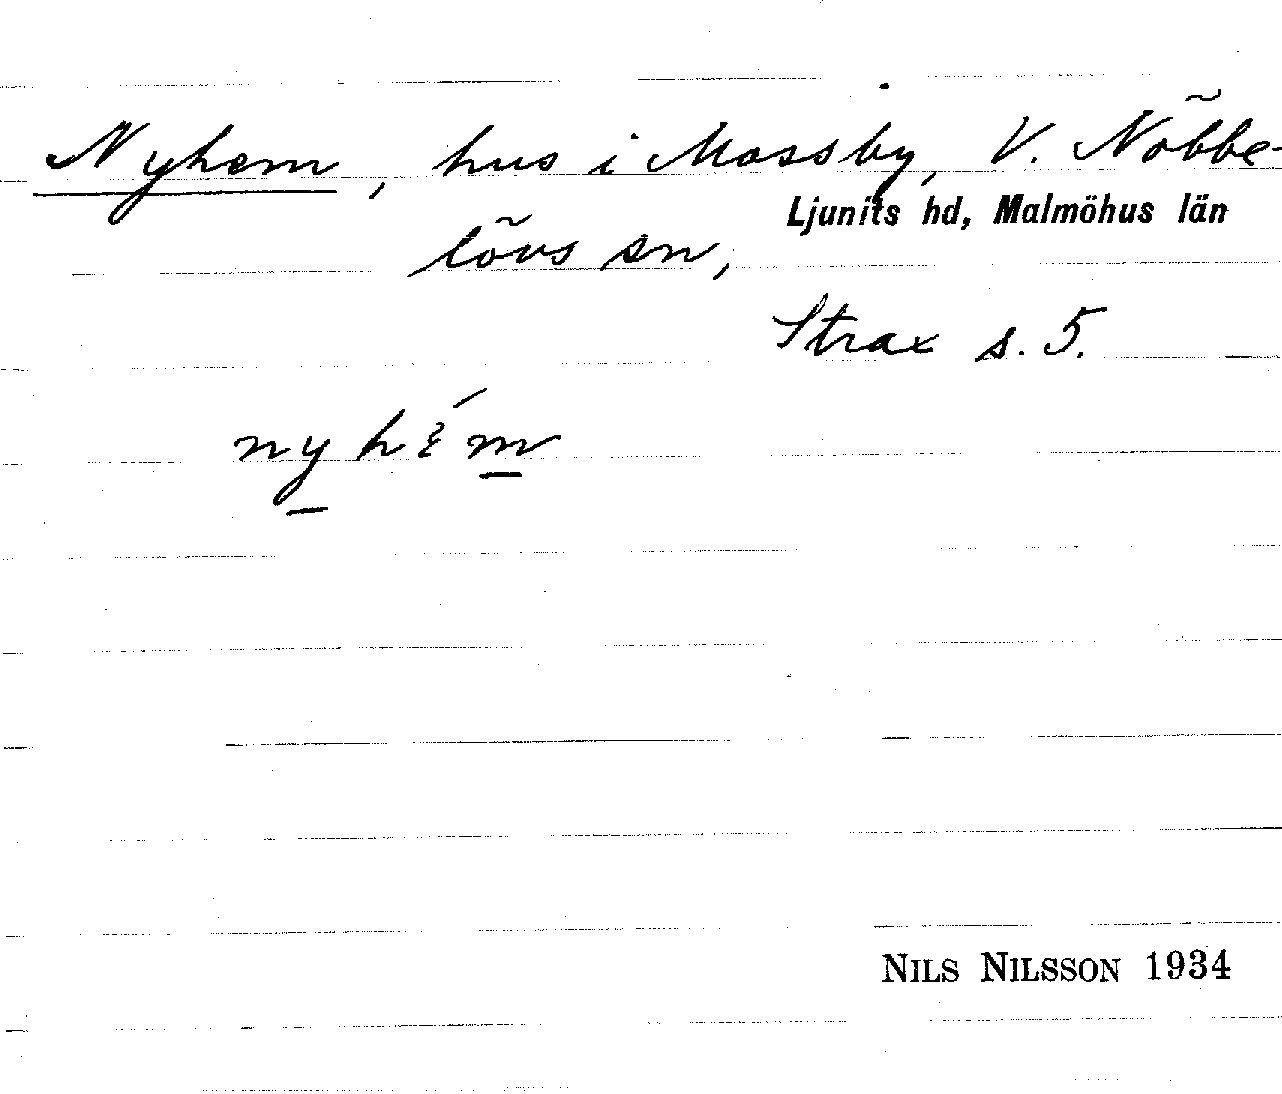 Nyhem, hus i Mossby, V. Nöbbe-
Ljunits hd, Malmöhus län
lövs sn,
Strax s. 5.
nyhém
NILS NILSSON 1934